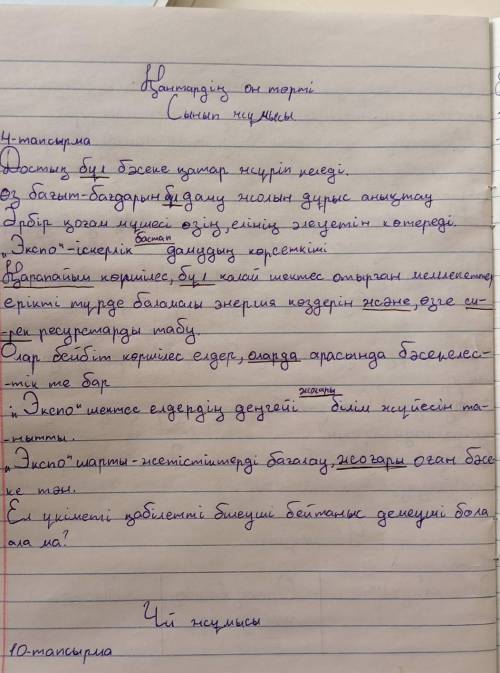 Қаңтардің он төрті
Сынып жұмысы
4-тапсырма
Достық бұл бәсеке қатар жүріп келеді.
өз бағыт-бағдарын даму жолын дұрыс анықтау
Әрбір қоғам мүшесі өзің, елінің әлеуетін көтереді.
бастап
„Экспо"-іскерлік дамудың көрсеткіші
Қарапайым көршілес, бұл қалай шектес отырған мемлекеттер
ерікті түрде баламалы энергия көздерін және, өзге си-
-рек ресурстарды табу.
Олар бейбіт көршілес елдер, оларда арасында бәсекелес-
-тік те бар
жоғары
„Экспо" шектес елдердің деңгейі білім жүйесін та-
-нытты.
„Экспо" шарты-жетістіктерді бағалау, жоғары оған бәсе
ке тән.
Ел үкіметі қабілетті билеуші бейтаныс демеуші бола
ала ма?
Үй жұмысы
10-тапсырма